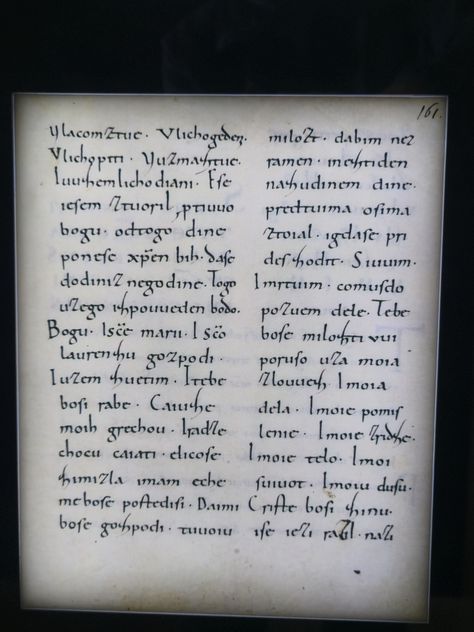 Ylacomztue. Vlichogeden.
Vlichopiti. Yuzmaztue.
Iuuizem lichodiani. Ese
iesem ztuoril, ptiuuo
bogu. odtogo dine
ponese xpen bih. dase
dodiniz negodine. Togo
uzego izpouueden bodo.
Bogu. Isce marii. Isco
laurenzu gozpodi.
Iuzem zuetim. Itebe
bosi rabe. Caiuze
moih grechou. Iradze
chocu caiati. elicose
zimizla imam eche
me bose postedisi. Daimi
bose gozpodi. tuuoiu
milozt. dabim nez
ramen. ineztiden
nazudinem dine.
predtuima osima
ztoial. igdase pri
des zodit. Siuuim.
Imrtuim. comusdo
pozuem dele. Tebe
bose milozti uui
poruso uza moia
zlouuez. Imoia
dela. Imoie pomis
lenie. Imoie zridze.
Imoie telo. Imoi
siuuot. Imoiu dusu.
Criste bosi zinu.
ise iezi razil. nazi
161.